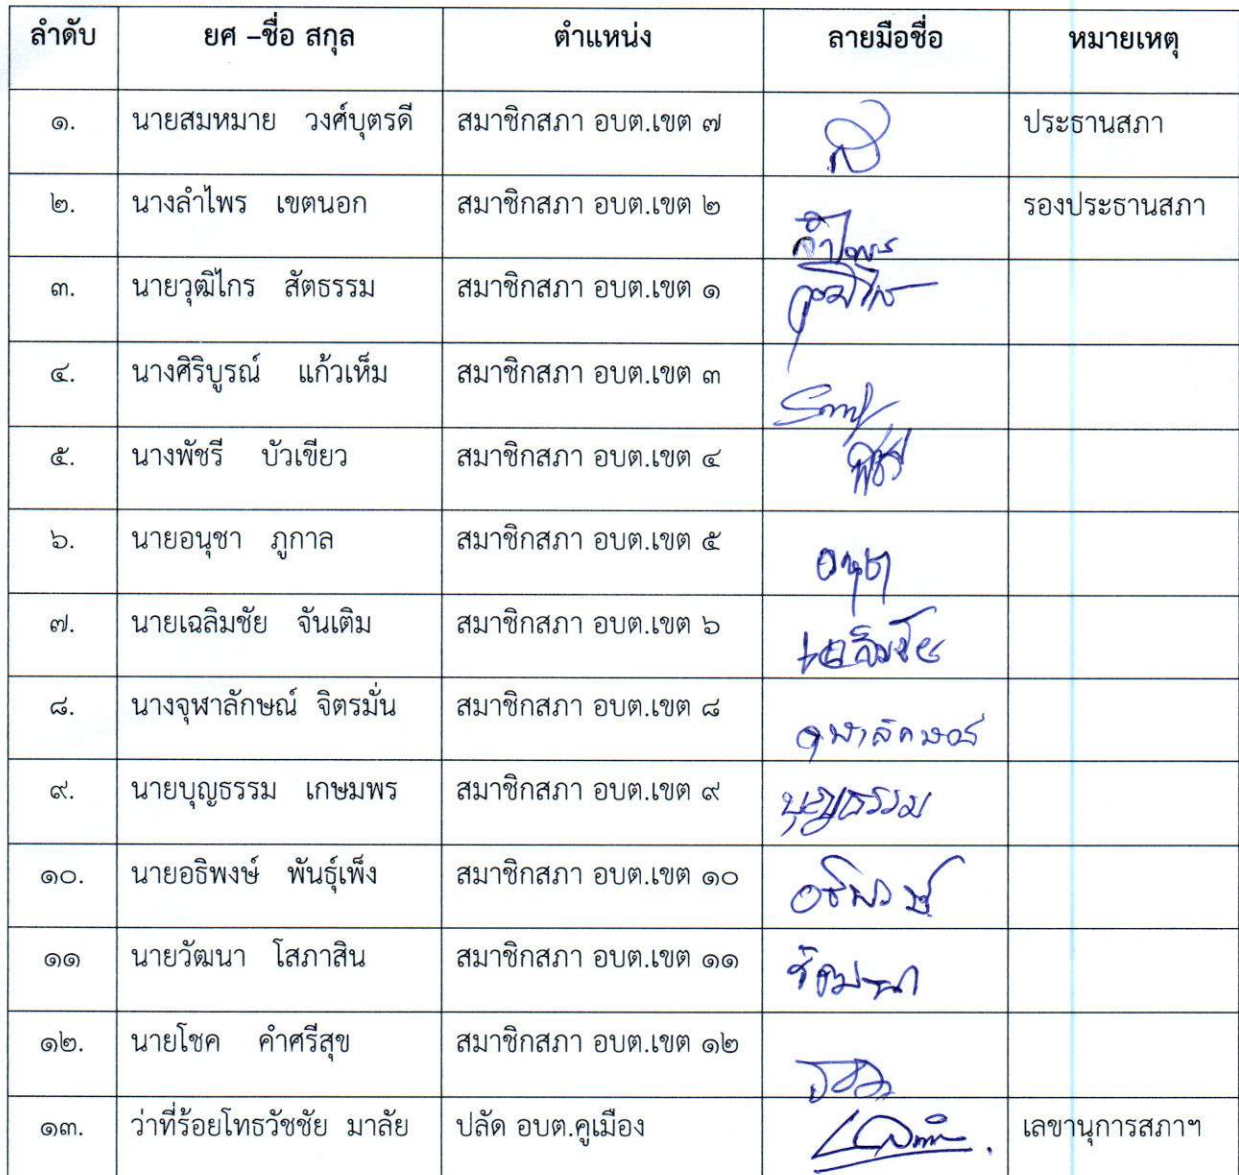 ลำดับ ยศ –ชื่อ สกุล ตำแหน่ง ลายมือชื่อ หมายเหตุ
๑. นายสมหมาย วงศ์บุตรดี สมาชิกสภา อบต.เขต ๗ ประธานสภา
๒. นางลำไพร เขตนอก สมาชิกสภา อบต.เขต ๒ ลำไพร รองประธานสภา
๓. นายวุฒิไกร สัตธรรม สมาชิกสภา อบต.เขต ๑ วุฒิไกร
๔. นางศิริบูรณ์ แก้วเห็ม สมาชิกสภา อบต.เขต ๓
๕. นางพัชรี บัวเขียว สมาชิกสภา อบต.เขต ๔ พัชรี
๖. นายอนุชา ภูกาล สมาชิกสภา อบต.เขต ๕ อนุชา
๗. นายเฉลิมชัย จันเติม สมาชิกสภา อบต.เขต ๖ เฉลิมชัย
๘. นางจุฬาลักษณ์ จิตรมั่น สมาชิกสภา อบต.เขต ๘ จุฬาลักษณ์
๙. นายบุญธรรม เกษมพร สมาชิกสภา อบต.เขต ๙ บุญธรรม
๑๐. นายอธิพงษ์ พันธุ์เพ็ง สมาชิกสภา อบต.เขต ๑๐ อธิพงษ์
๑๑ นายวัฒนา โสภาสิน สมาชิกสภา อบต.เขต ๑๑ วัฒนา
๑๒. นายโชค คำศรีสุข สมาชิกสภา อบต.เขต ๑๒
๑๓. ว่าที่ร้อยโทธวัชชัย มาลัย ปลัด อบต.คูเมือง เลขานุการสภาฯ